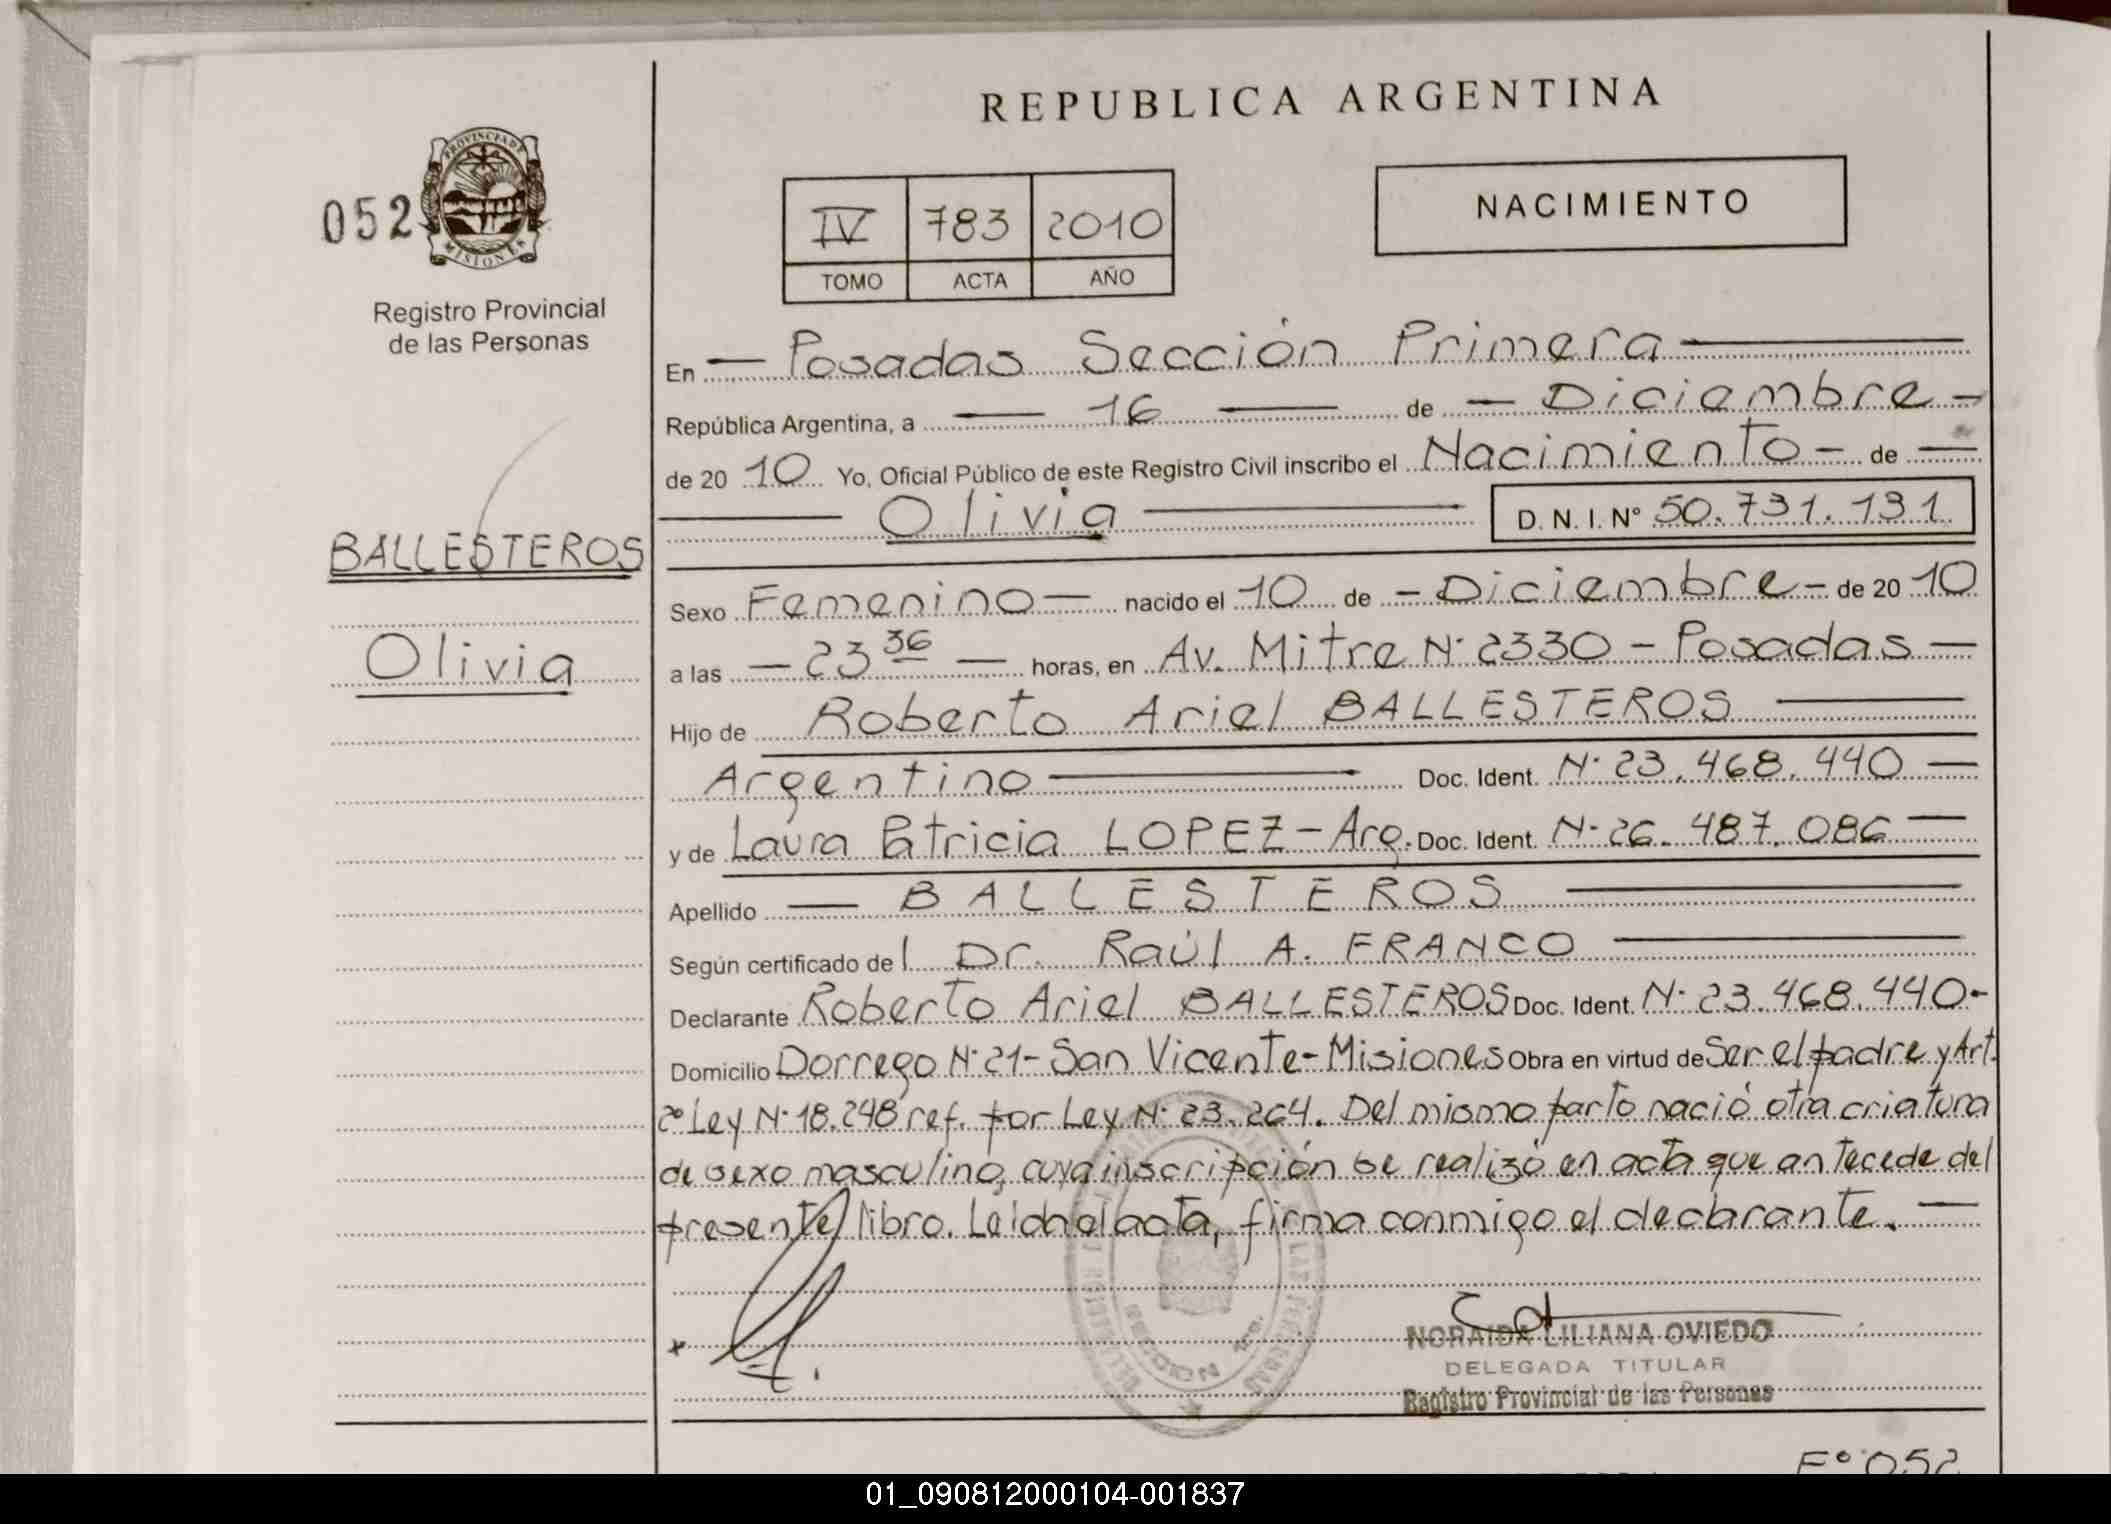 REPUBLICA ARGENTINA
052
PROVINCIA DE MISIONES
Registro Provincial
de las Personas
IV 783 2010
TOMO ACTA AÑO
NACIMIENTO
BALLESTEROS
Olivia
En — Posadas Sección Primera —
República Argentina, a — 16 — de — Diciembre —
de 20 10 Yo, Oficial Público de este Registro Civil inscribo el Nacimiento — de —
— Olivia — D. N. I. N° 50.731.131
Sexo Femenino — nacido el 10 de — Diciembre — de 20 10
a las — 23 36 — horas, en Av. Mitre N° 2330 — Posadas —
Hijo de Roberto Ariel BALLESTEROS —
Argentino — Doc. Ident. N° 23.468.440 —
y de Laura Patricia LOPEZ — Arg. Doc. Ident. N° 26.487.086 —
Apellido — BALLESTEROS —
Según certificado del Dr. Raúl A. FRANCO —
Declarante Roberto Ariel BALLESTEROS Doc. Ident. N° 23.468.440 -
Domicilio Dorrego N° 21 - San Vicente - Misiones Obra en virtud de Ser el padre y Art.
2° Ley N° 18.248 ref. por Ley N° 23.264. Del mismo parto nació otra criatura
de sexo masculino, cuya inscripción se realizó en acta que antecede del
presente libro. Leída el acta, firma conmigo el declarante. —
x
NORAIDA LILIANA OVIEDO
DELEGADA TITULAR
Registro Provincial de las Personas
F° 052
01_090812000104-001837